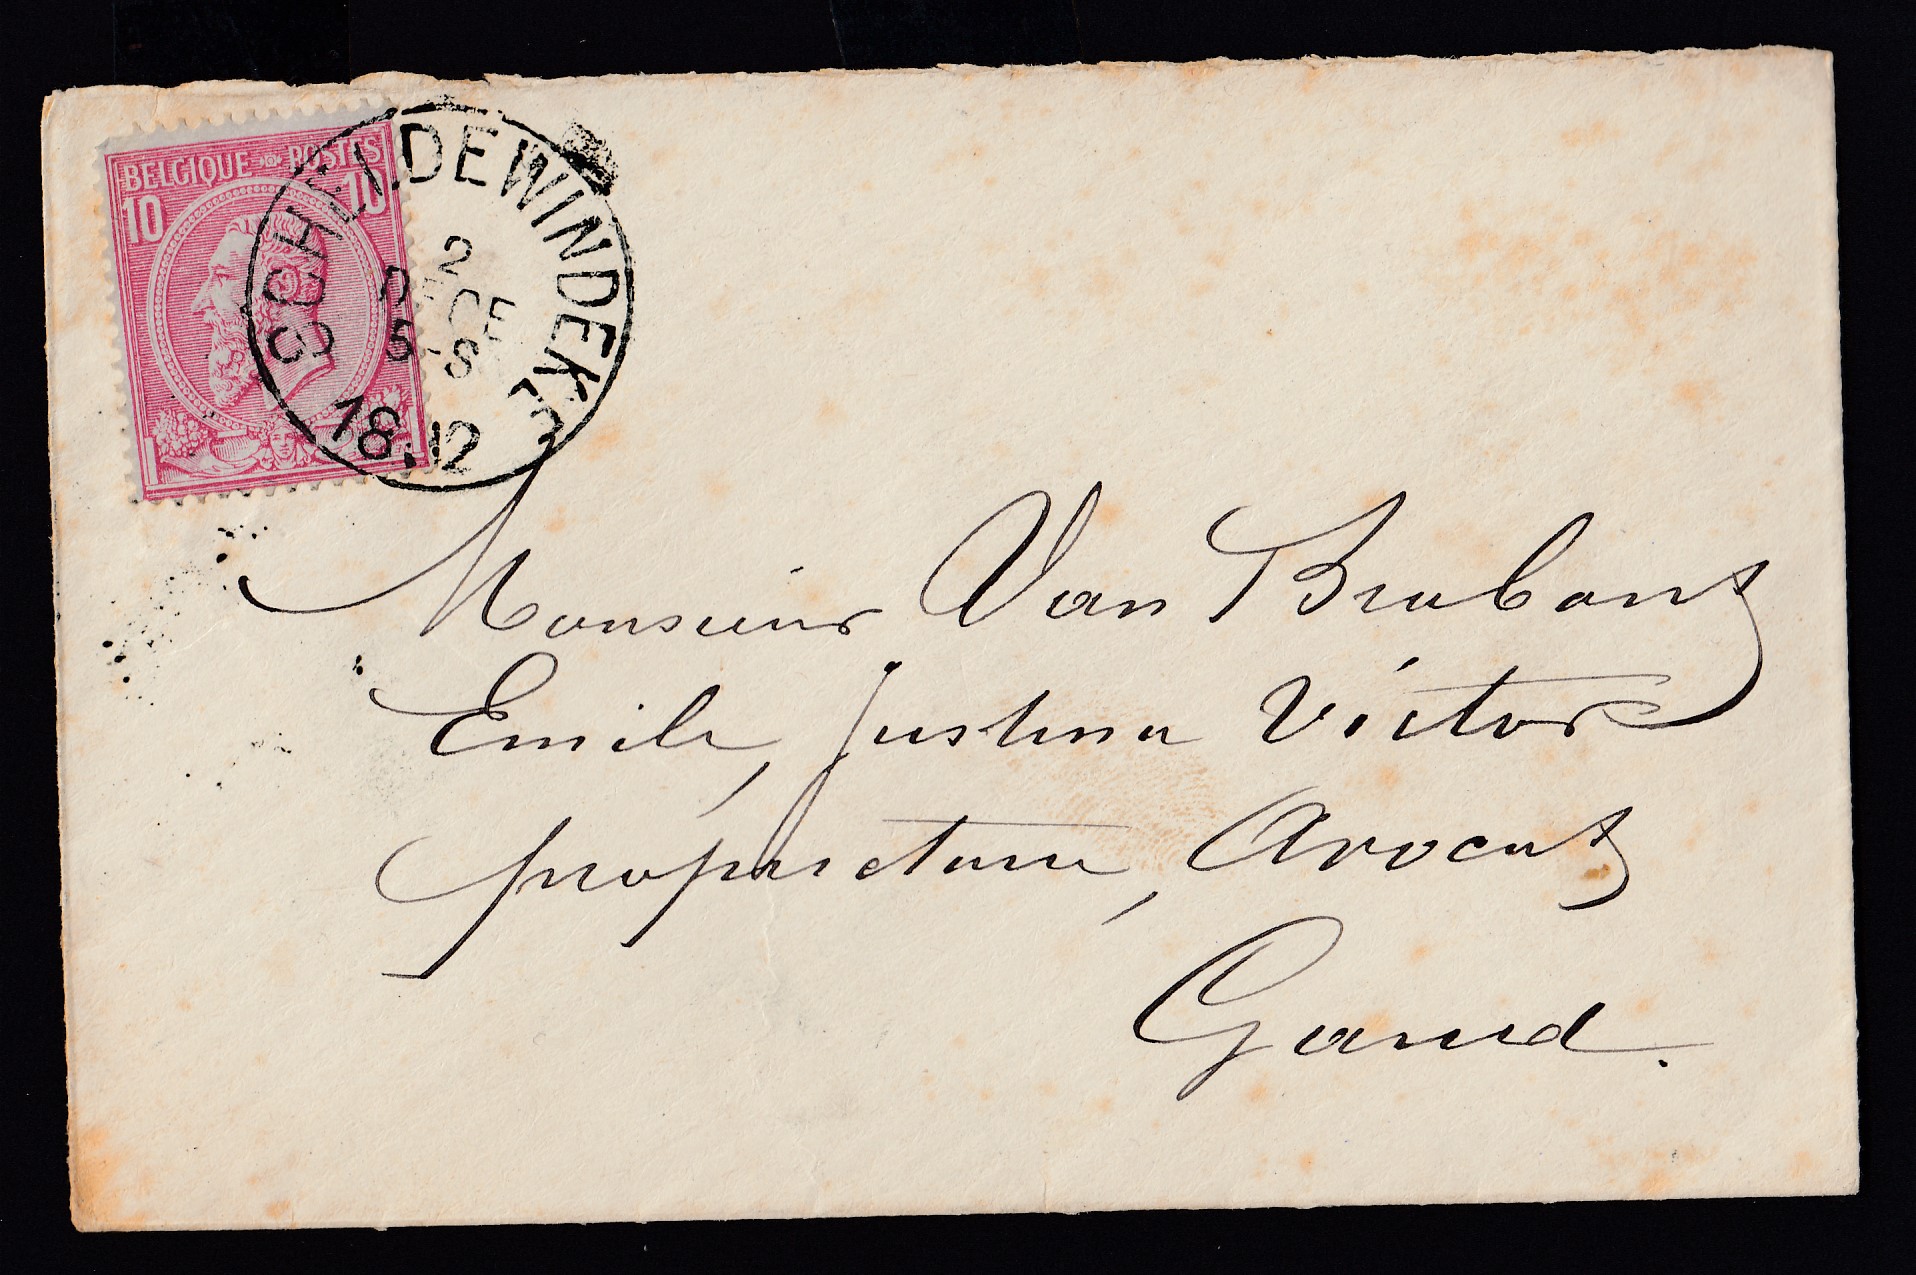 BELGIQUE POSTES
10 10
SCHELDEWINDEKE
2
DECE
5-S
1892
Monsieur Van Brabant
Emile, Justin Victor
propriétaire, Avocat
Gand.